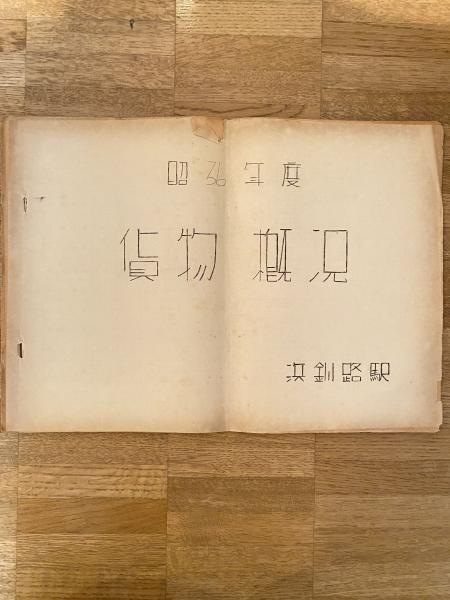 昭36年度
貨物概況
浜釧路駅